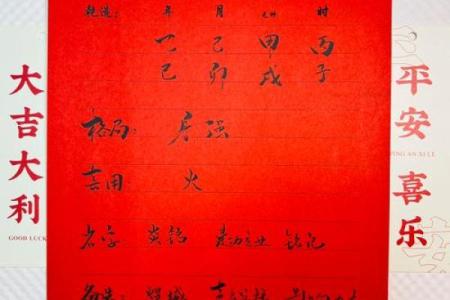 乾造: 年 月 日 时
乙 己 甲 丙
巳 卯 戌 子
格局: 身强
喜用: 火
名字 炎铭 铭记
大吉大利
GOOD LUCK
平安喜乐
AN XI LE